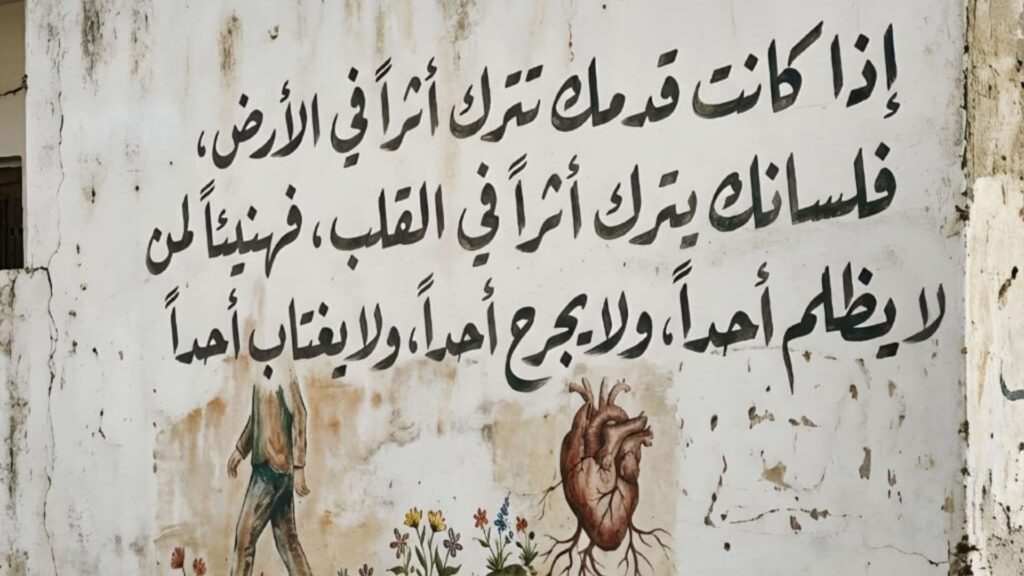 إذا كانت قدمك تترك أثراً في الأرض،
فلسانك يترك أثراً في القلب، فهنيئاً لمن
لا يظلم أحداً، ولا يجرح أحداً، ولا يغتاب أحداً